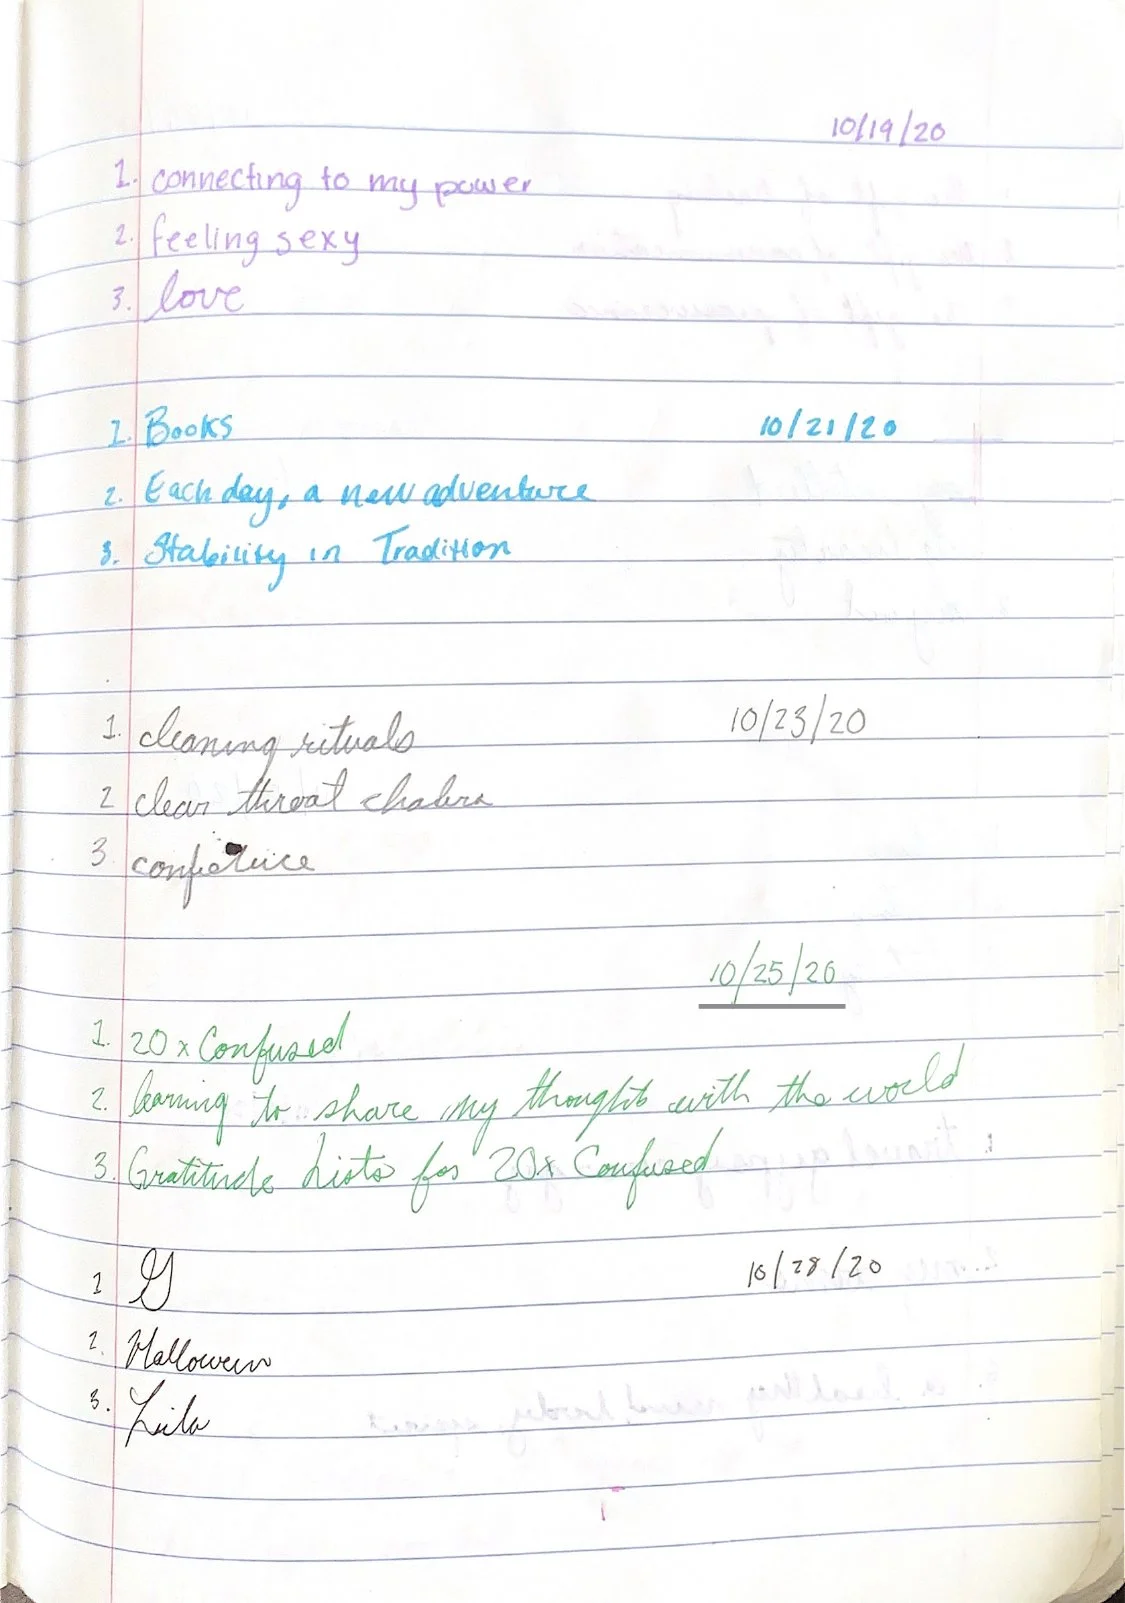 10/19/20
1. connecting to my power
2. feeling sexy
3. love
1. Books 10/21/20
2. Each day, a new adventure
3. Stability in Tradition
1. cleaning rituals 10/23/20
2 clear throat chakra
3
10/25/20
1. 20x Confused
2. learning to share my thoughts with the world
3. Gratitude Lists for 20x Confused
1 G 10/28/20
2. Halloween
3. Lila